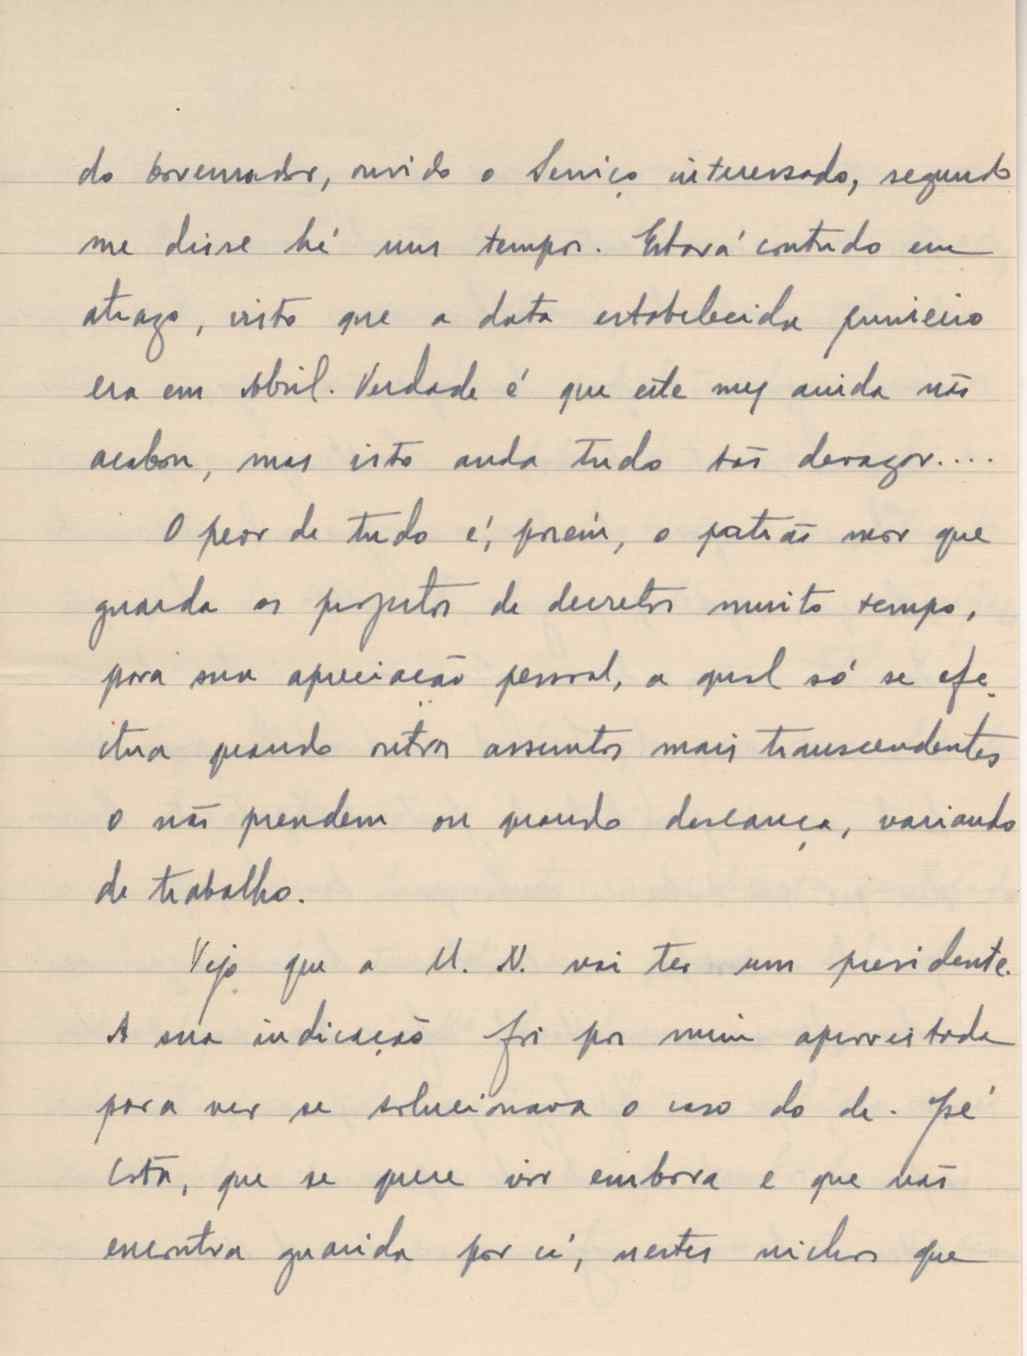 do Governador, ouvido o Serviço interessado, segundo
me disse há uns tempos. Estará contudo em
atrazo, visto que a data estabelecida primeiro
era em Abril. Verdade é que este mez ainda não
acabou, mas isto anda tudo tão devagar....
O peor de tudo é, porém, o patrão mor que
guarda os projetos de decretos muito tempo,
para sua apreciação pessoal, a qual só se efe
ctua quando outros assuntos mais transcendentes
o não prendem ou quando descança, variando
de trabalho.
Vejo que a U. N. vai ter um presidente.
A sua indicação foi por mim aproveitada
para ver se solucionava o caso do dr. José
Cota, que se quere vir embora e que não
encontra guarida por cá, nestes nichos que